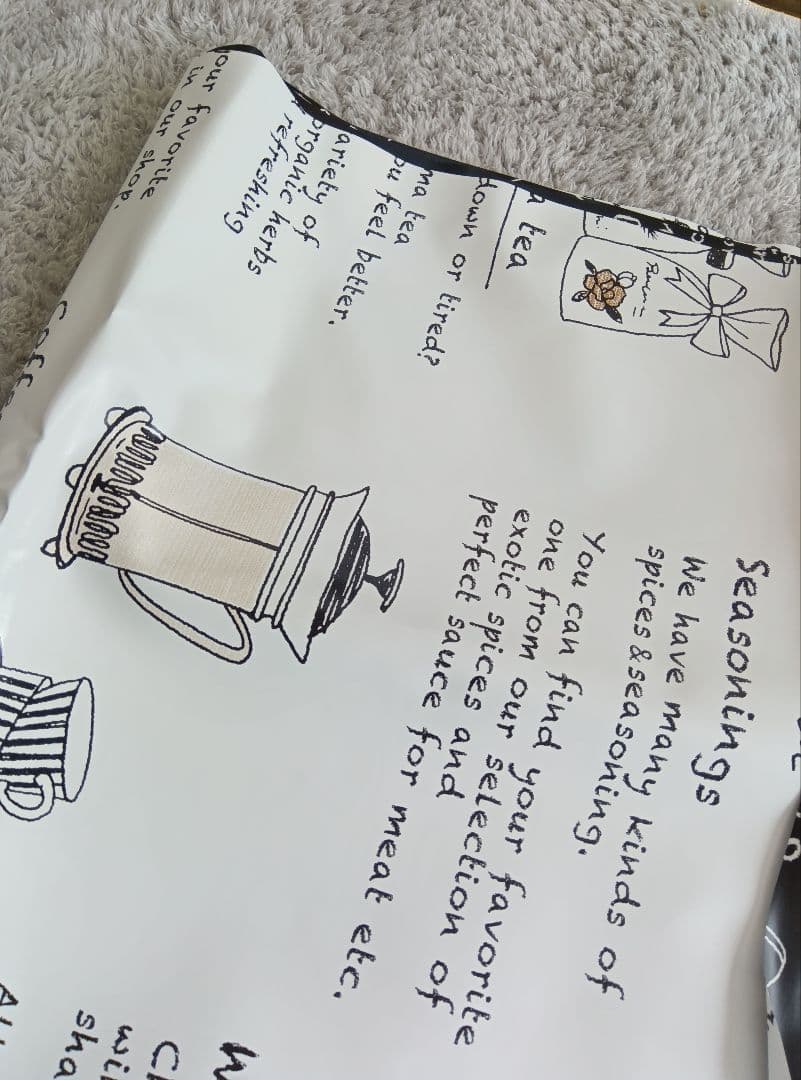 tea
down or tired?
tea
feel better.
of
organic herbs
refreshing
your favorite
in our shop.
Seasonings
We have many kinds of
spices&seasoning.
You can find your favorite
one from our selection of
exotic spices and
perfect sauce for meat etc.